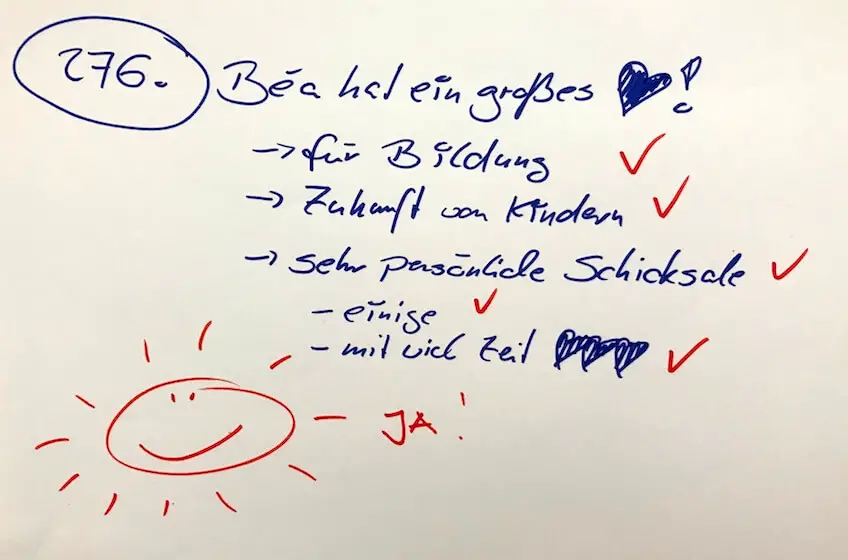 276. Béa hat ein großes ♥!
→ für Bildung ✓
→ Zukunft von Kindern ✓
→ sehr persönliche Schicksale ✓
- einige ✓
- mit viel Zeit ♥♥♥♥ ✓
JA!